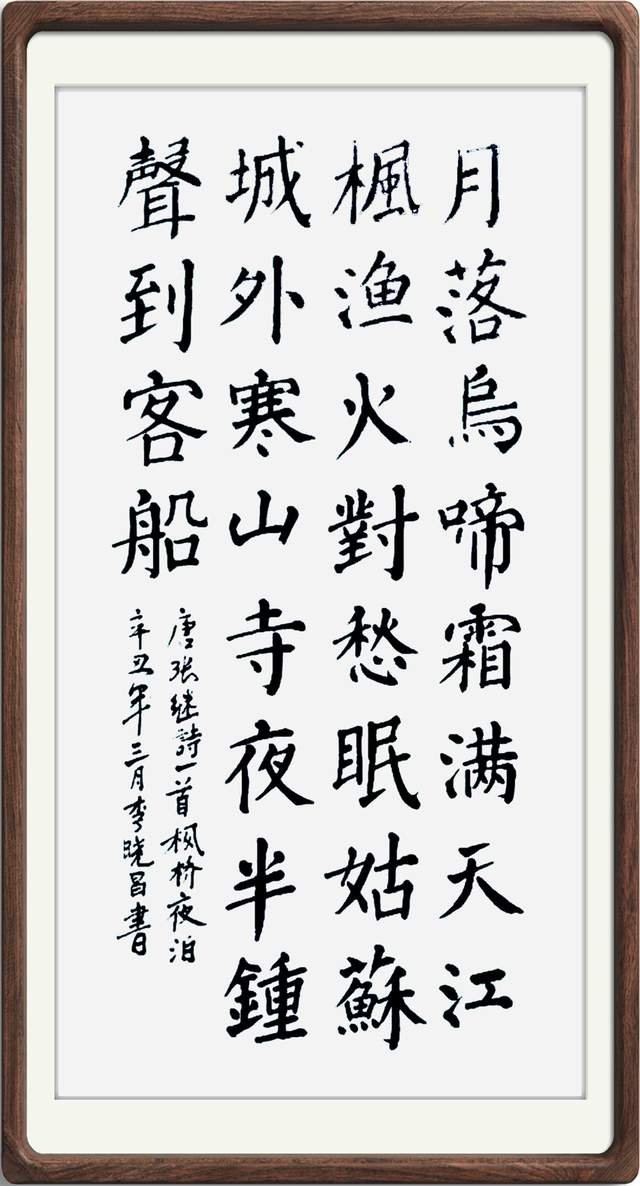 月落烏啼霜满天江
楓渔火對愁眠姑蘇
城外寒山寺夜半鍾
聲到客船
唐张继詩一首枫桥夜泊
辛丑年三月李晓昌書